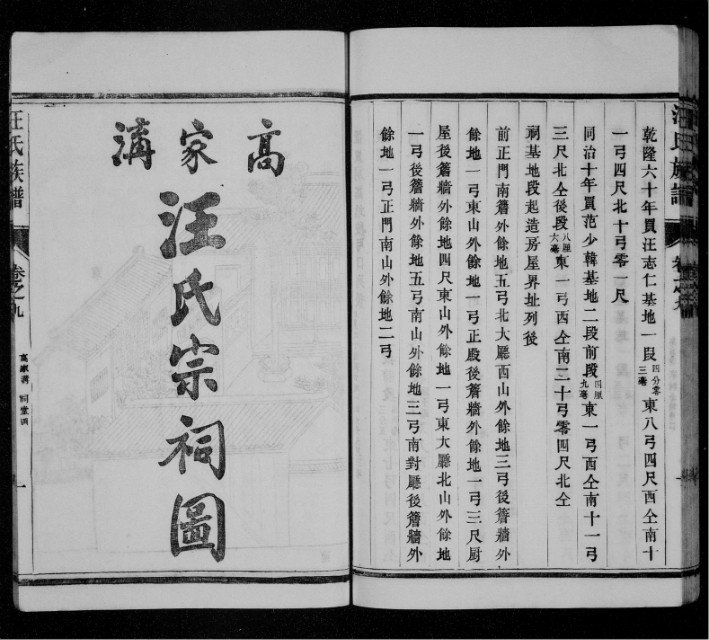 汪氏族譜
卷之九
乾隆六十年買汪志仁基地一段四分零三毫東八弓四尺西仝南十
一弓四尺北十弓零一尺
同治十年買范少韓基地二段前段四厘九毫東一弓西仝南十一弓
三尺北仝後段八厘六毫東一弓西仝南二十弓零四尺北仝
祠基地段起造房屋界址列後
前正門南簷外餘地五弓北大廳西山外餘地三弓後簷牆外
餘地一弓東山外餘地一弓正殿後簷牆外餘地一弓三尺厨
屋後簷牆外餘地四尺東山外餘地一弓東大廳北山外餘地
一弓後簷牆外餘地五弓南山外餘地三弓南對廳後簷牆外
餘地一弓正門南山外餘地二弓
高家溝
汪氏宗祠圖
汪氏族譜
卷之九
高家溝
祠堂圖
一